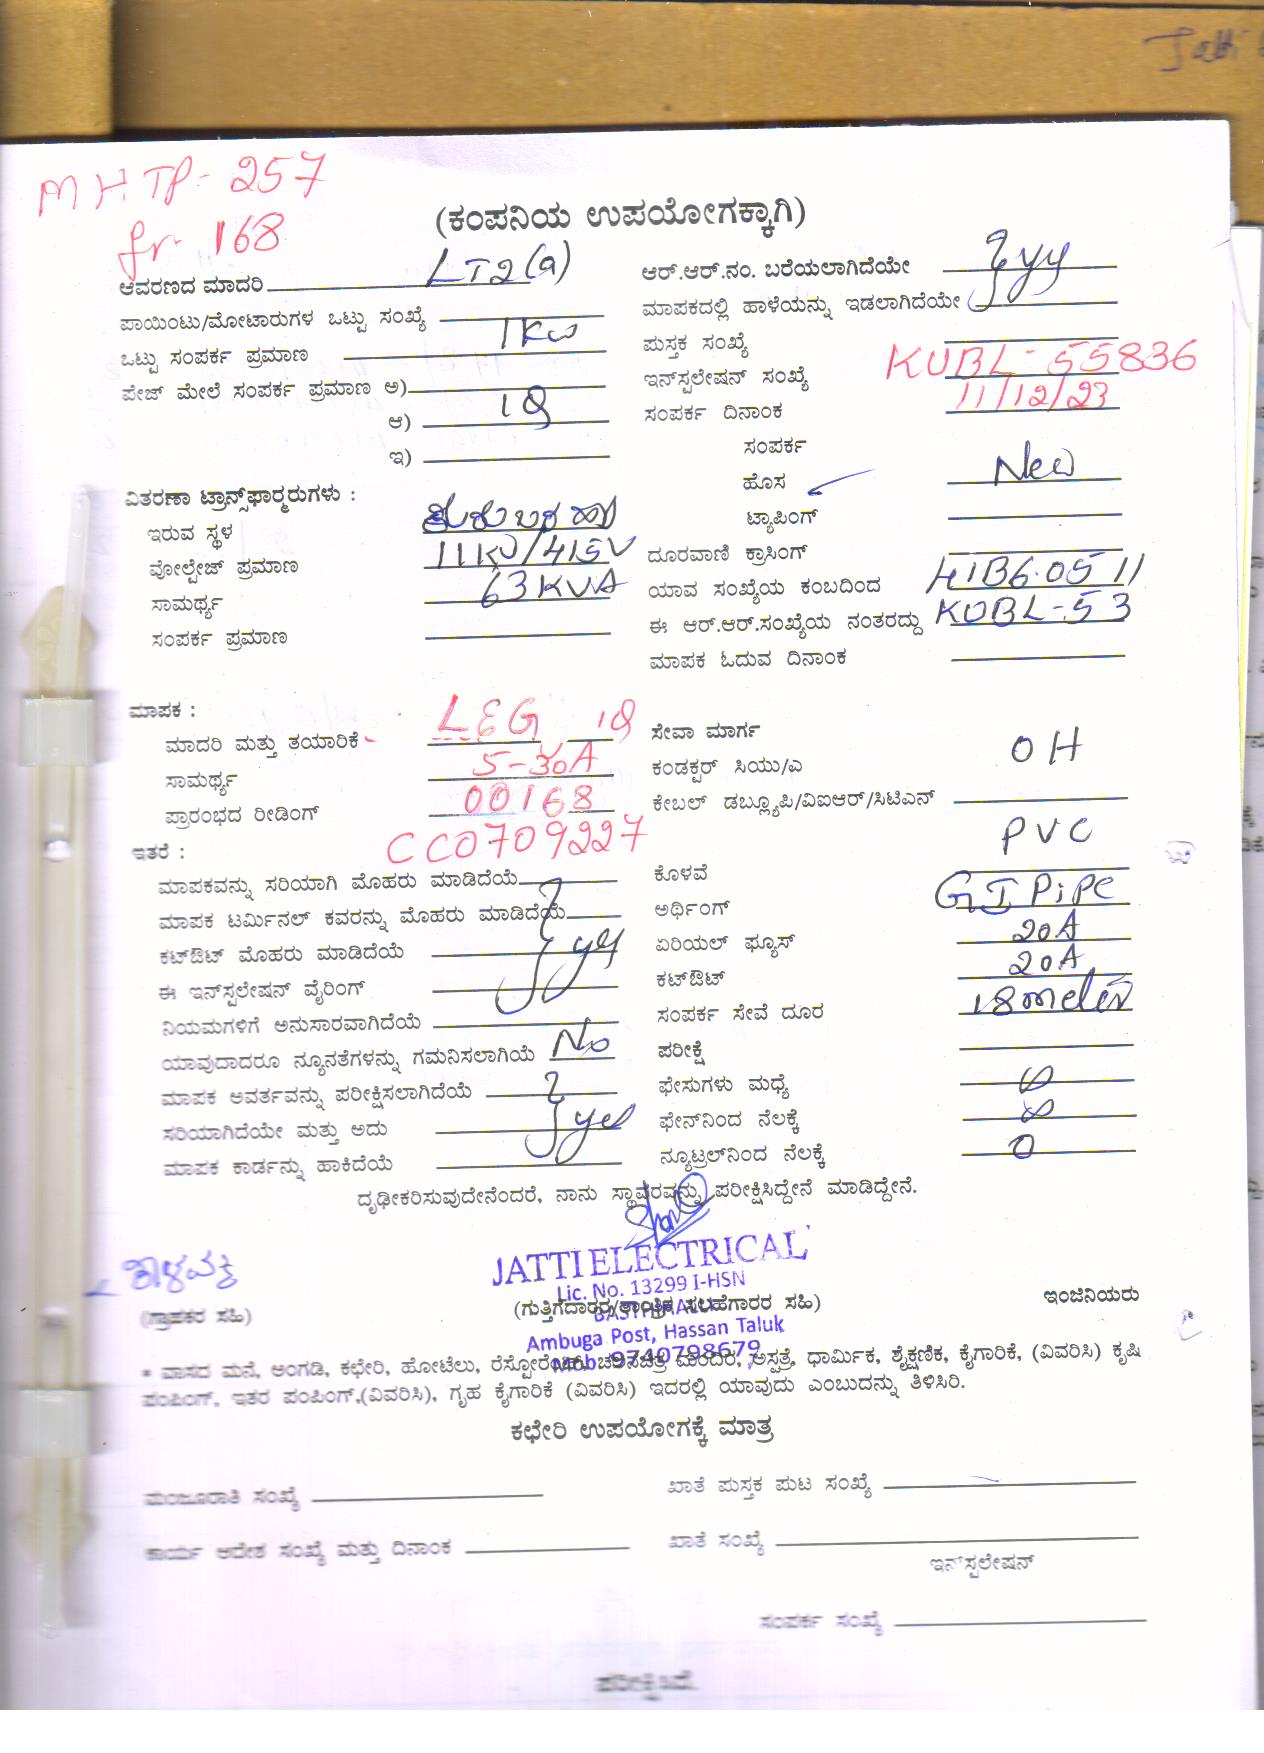 Jatti
MHTP-257
fr 168
(ಕಂಪನಿಯ ಉಪಯೋಗಕ್ಕಾಗಿ)
ಆವರಣದ ಮಾದರಿ LT2(a)
ಪಾಯಿಂಟು/ಮೋಟಾರುಗಳ ಒಟ್ಟು ಸಂಖ್ಯೆ
ಒಟ್ಟು ಸಂಪರ್ಕ ಪ್ರಮಾಣ 1KW
ಪೇಜ್ ಮೇಲೆ ಸಂಪರ್ಕ ಪ್ರಮಾಣ ಅ)
ಆ) 1Φ
ಇ)
ವಿತರಣಾ ಟ್ರಾನ್ಸ್‌ಫಾರ್ಮರುಗಳು :
ಇರುವ ಸ್ಥಳ
ವೋಲ್ಟೇಜ್ ಪ್ರಮಾಣ 11KV/415V
ಸಾಮರ್ಥ್ಯ 63KVA
ಸಂಪರ್ಕ ಪ್ರಮಾಣ
ಆರ್.ಆರ್.ನಂ. ಬರೆಯಲಾಗಿದೆಯೇ
ಮಾಪಕದಲ್ಲಿ ಹಾಳೆಯನ್ನು ಇಡಲಾಗಿದೆಯೇ
ಪುಸ್ತಕ ಸಂಖ್ಯೆ
ಇನ್‌ಸ್ಟಲೇಷನ್ ಸಂಖ್ಯೆ KUBL-55836
ಸಂಪರ್ಕ ದಿನಾಂಕ 11/12/23
ಸಂಪರ್ಕ
ಹೊಸ New
ಟ್ಯಾಪಿಂಗ್
ದೂರವಾಣಿ ಕ್ರಾಸಿಂಗ್
ಯಾವ ಸಂಖ್ಯೆಯ ಕಂಬದಿಂದ
ಈ ಆರ್.ಆರ್.ಸಂಖ್ಯೆಯ ನಂತರದ್ದು KUBL-53
ಮಾಪಕ ಓದುವ ದಿನಾಂಕ
ಮಾಪಕ :
ಮಾದರಿ ಮತ್ತು ತಯಾರಿಕೆ LEG 1Φ
ಸಾಮರ್ಥ್ಯ 5-30A
ಪ್ರಾರಂಭದ ರೀಡಿಂಗ್ 00168
ಇತರೆ : CC0709227
ಮಾಪಕವನ್ನು ಸರಿಯಾಗಿ ಮೊಹರು ಮಾಡಿದೆಯೆ
ಮಾಪಕ ಟರ್ಮಿನಲ್ ಕವರನ್ನು ಮೊಹರು ಮಾಡಿದೆಯೆ
ಕಟ್‌ಔಟ್ ಮೊಹರು ಮಾಡಿದೆಯೆ yes
ಈ ಇನ್‌ಸ್ಟಲೇಷನ್ ವೈರಿಂಗ್
ನಿಯಮಗಳಿಗೆ ಅನುಸಾರವಾಗಿದೆಯೆ
ಯಾವುದಾದರೂ ನ್ಯೂನತೆಗಳನ್ನು ಗಮನಿಸಲಾಗಿಯೆ No
ಮಾಪಕ ಅವರ್ತವನ್ನು ಪರೀಕ್ಷಿಸಲಾಗಿದೆಯೆ
ಸರಿಯಾಗಿದೆಯೇ ಮತ್ತು ಅದು yes
ಮಾಪಕ ಕಾರ್ಡನ್ನು ಹಾಕಿದೆಯೆ
ಸೇವಾ ಮಾರ್ಗ
ಕಂಡಕ್ಟರ್ ಸಿಯು/ಎ OH
ಕೇಬಲ್ ಡಬ್ಲ್ಯೂಪಿ/ವಿಐಆರ್/ಸಿಟಿಎನ್
PVC
ಕೊಳವೆ
ಅರ್ಥಿಂಗ್ GI Pipe
ಏರಿಯಲ್ ಫ್ಯೂಸ್ 20A
ಕಟ್‌ಔಟ್ 20A
ಸಂಪರ್ಕ ಸೇವೆ ದೂರ 18 meter
ಪರೀಕ್ಷೆ
ಫೇಸುಗಳು ಮಧ್ಯೆ ∞
ಫೇಸ್‌ನಿಂದ ನೆಲಕ್ಕೆ ∞
ನ್ಯೂಟ್ರಲ್‌ನಿಂದ ನೆಲಕ್ಕೆ 0
ದೃಢೀಕರಿಸುವುದೇನೆಂದರೆ, ನಾನು ಸ್ಥಾವರವನ್ನು ಪರೀಕ್ಷಿಸಿದ್ದೇನೆ ಮಾಡಿದ್ದೇನೆ.
JATTI ELECTRICAL
Lic. No. 13299 I-HSN
(ಗ್ರಾಹಕರ ಸಹಿ) (ಗುತ್ತಿಗೆದಾರರ/ತಾಂತ್ರಿಕ ಸಲಹೆಗಾರರ ಸಹಿ) ಇಂಜಿನಿಯರು
Ambuga Post, Hassan Taluk
Mob: 9740798679
* ವಾಸದ ಮನೆ, ಅಂಗಡಿ, ಕಛೇರಿ, ಹೋಟೆಲು, ರೆಸ್ಟೋರೆಂಟ್, ಚಲನಚಿತ್ರ ಮಂದಿರ, ಅಸ್ಪತ್ರೆ, ಧಾರ್ಮಿಕ, ಶೈಕ್ಷಣಿಕ, ಕೈಗಾರಿಕೆ, (ವಿವರಿಸಿ) ಕೃಷಿ
ಪಂಪಿಂಗ್, ಇತರ ಪಂಪಿಂಗ್,(ವಿವರಿಸಿ), ಗೃಹ ಕೈಗಾರಿಕೆ (ವಿವರಿಸಿ) ಇದರಲ್ಲಿ ಯಾವುದು ಎಂಬುದನ್ನು ತಿಳಿಸಿರಿ.
ಕಛೇರಿ ಉಪಯೋಗಕ್ಕೆ ಮಾತ್ರ
ಮಂಜೂರಾತಿ ಸಂಖ್ಯೆ
ಖಾತೆ ಪುಸ್ತಕ ಪುಟ ಸಂಖ್ಯೆ
ಕಾರ್ಯ ಆದೇಶ ಸಂಖ್ಯೆ ಮತ್ತು ದಿನಾಂಕ
ಖಾತೆ ಸಂಖ್ಯೆ
ಇನ್‌ಸ್ಟಲೇಷನ್
ಸಂಪರ್ಕ ಸಂಖ್ಯೆ
ಪರೀಕ್ಷಿಸಿದೆ.